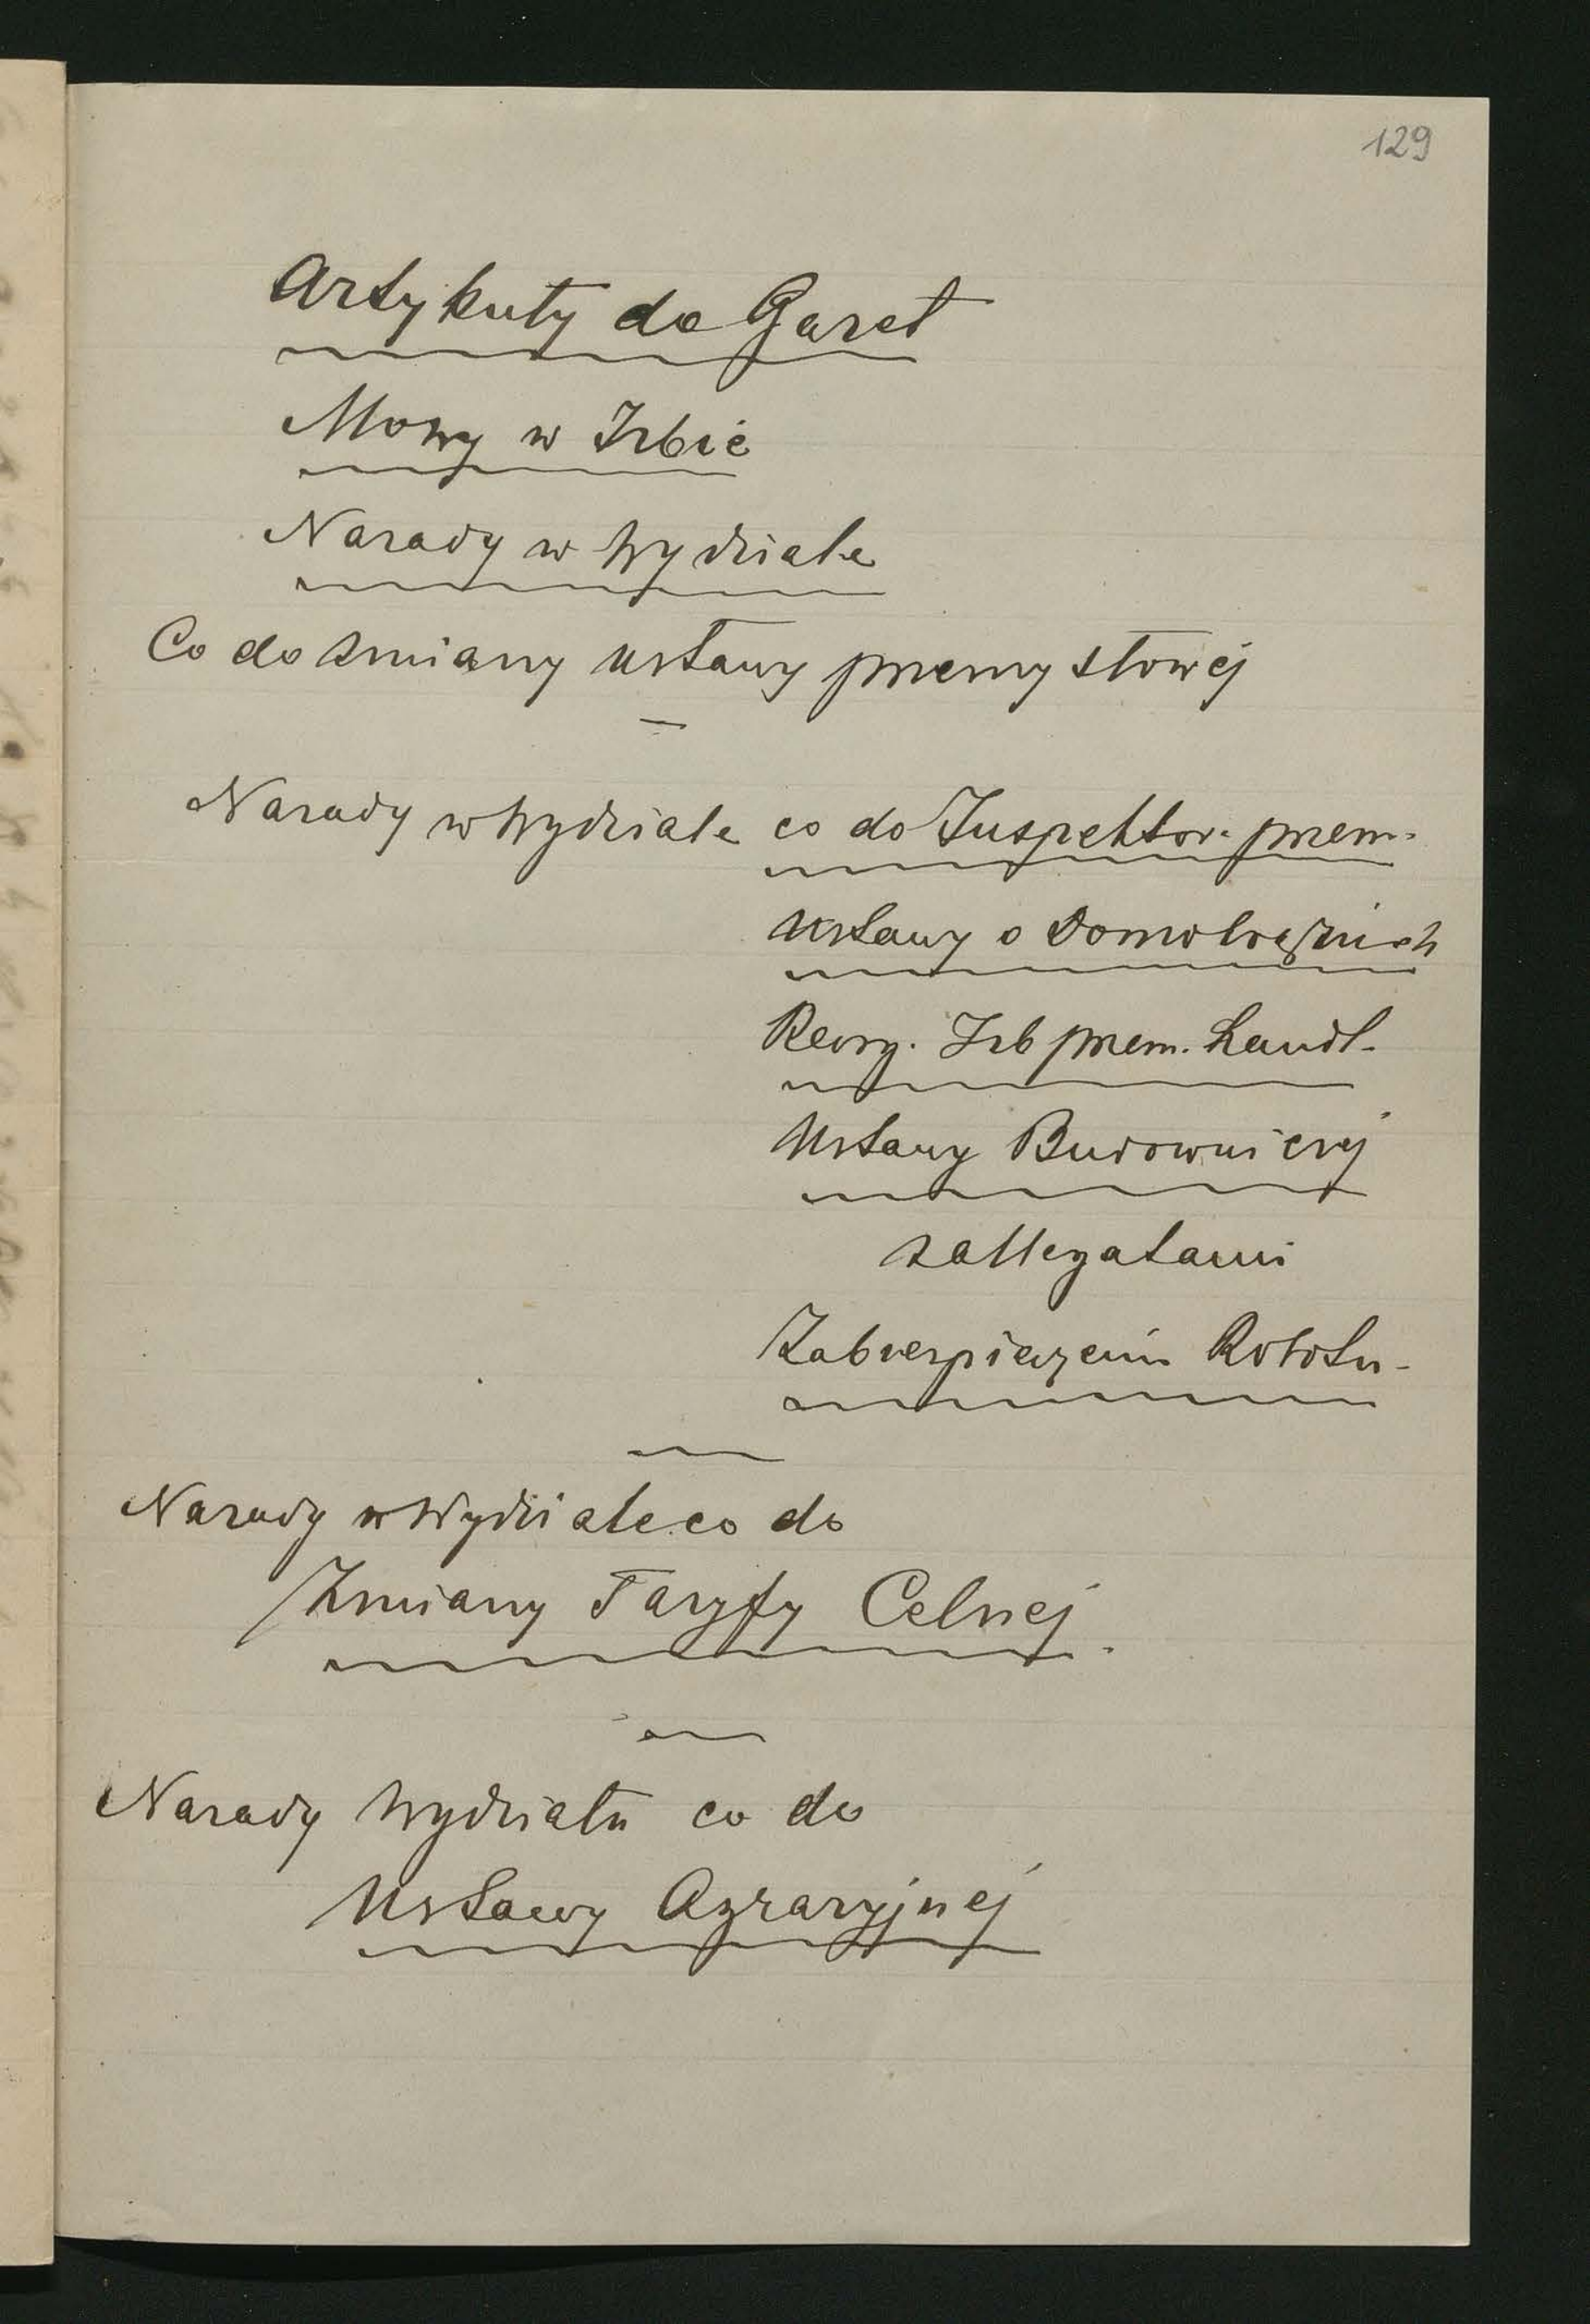 129
Artykuły do Gazet
Mowy w Izbie
Narady w Wydziale
Co do zmiany ustawy przemysłowéj
Narady w Wydziale co do Inspektor. przem.
Ustawy o Domokrążnich
Reorg. Izb przem. handl.
Ustawy Budowniczej
z allegatami
Zabezpieczenia Robotn.
Narady w Wydziale co do
Zmiany Taryfy Celnej.
Narady Wydziału co do
Ustawy Agraryjnej